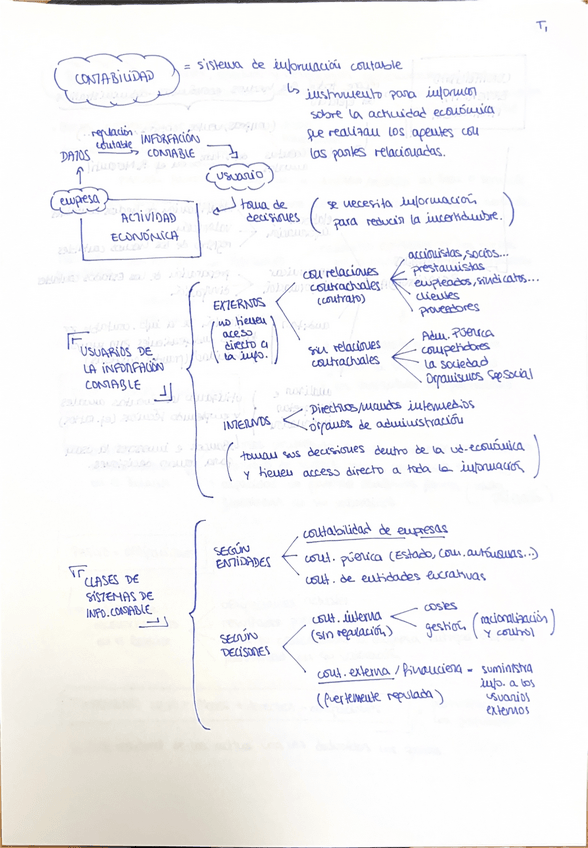 T1
CONTABILIDAD = sistema de información contable
↳ instrumento para informar
sobre la actividad económica
que realizan los agentes con
las partes relacionadas.
regulación
contable
DATOS → INFORMACIÓN
CONTABLE
USUARIO
empresa
ACTIVIDAD
ECONÓMICA
toma de
decisiones
(se necesita información
para reducir la incertidumbre.)
USUARIOS DE
LA INFORMACIÓN
CONTABLE
EXTERNOS
(no tienen
acceso
directo a
la info.)
con relaciones
contractuales
(contrato)
accionistas, socios...
prestamistas
empleados, sindicatos...
clientes
proveedores
sin relaciones
contractuales
Adm. Pública
competidores
la sociedad
Organismos Sgsocial
INTERNOS
Directivos/mandos intermedios
órganos de administración
(toman sus decisiones dentro de la ud-económica
y tienen acceso directo a toda la información)
CLASES DE
SISTEMAS DE
INFO. CONTABLE
SEGÚN
ENTIDADES
contabilidad de empresas
cont. pública (Estado, com. autónomas...)
cont. de entidades lucrativas
SEGÚN
DECISIONES
cont. interna
(sin regulación)
costes
gestión (racionalización
y control)
cont. externa / financiera = suministra
info. a los
usuarios
externos
(fuertemente regulada)